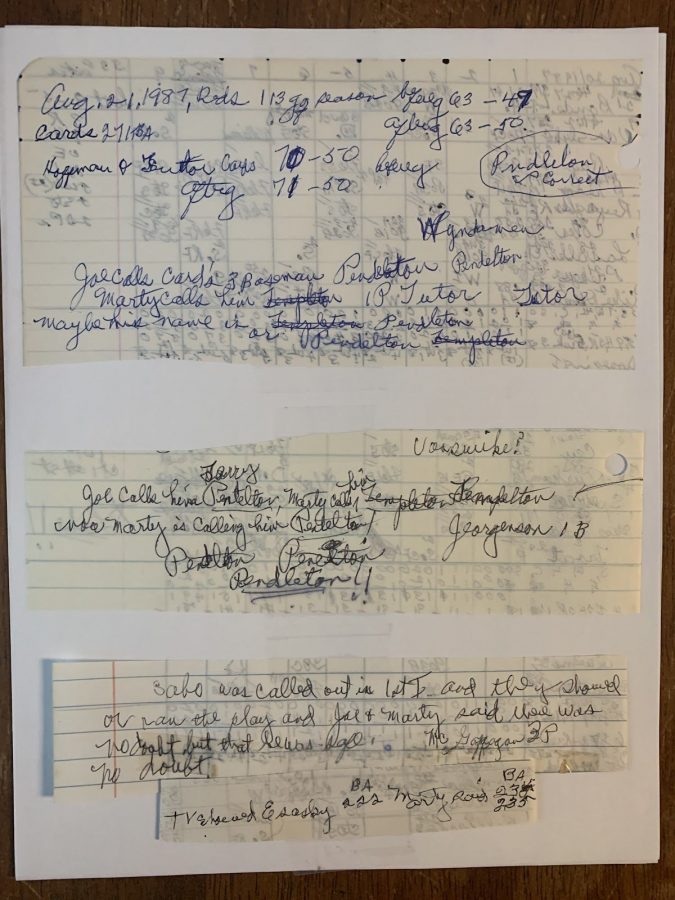 Aug. 21, 1987, Reds 113 gg season befeg 63-47
Cards 27 HSA afteg 63-50
& Tuttor Cards 71-50 befeg
afteg 71-50
Pendleton
is correct
Wyndamen
Joe calls Cards 3 Baseman Pendleton Pendelton
Marty calls him Templeton 1P Tutor Tutor
maybe his name is Templeton Pendleton
or Pendelton Templeton
Vanswike?
Terry
Joe calls him Pendelton, Marty calls him Templeton Templeton
now Marty is calling him Pendelton
Jeorgenson 1 B
Pendleton Pendleton
Pendleton!!
Sabo was called out in 1st I and they showed
or ran the play and Joe & Marty said there was
no doubt but that he was
Mc Gaffagan 2P
no doubt.
BA BA
TV showed Esasky 222 Marty said 234
235